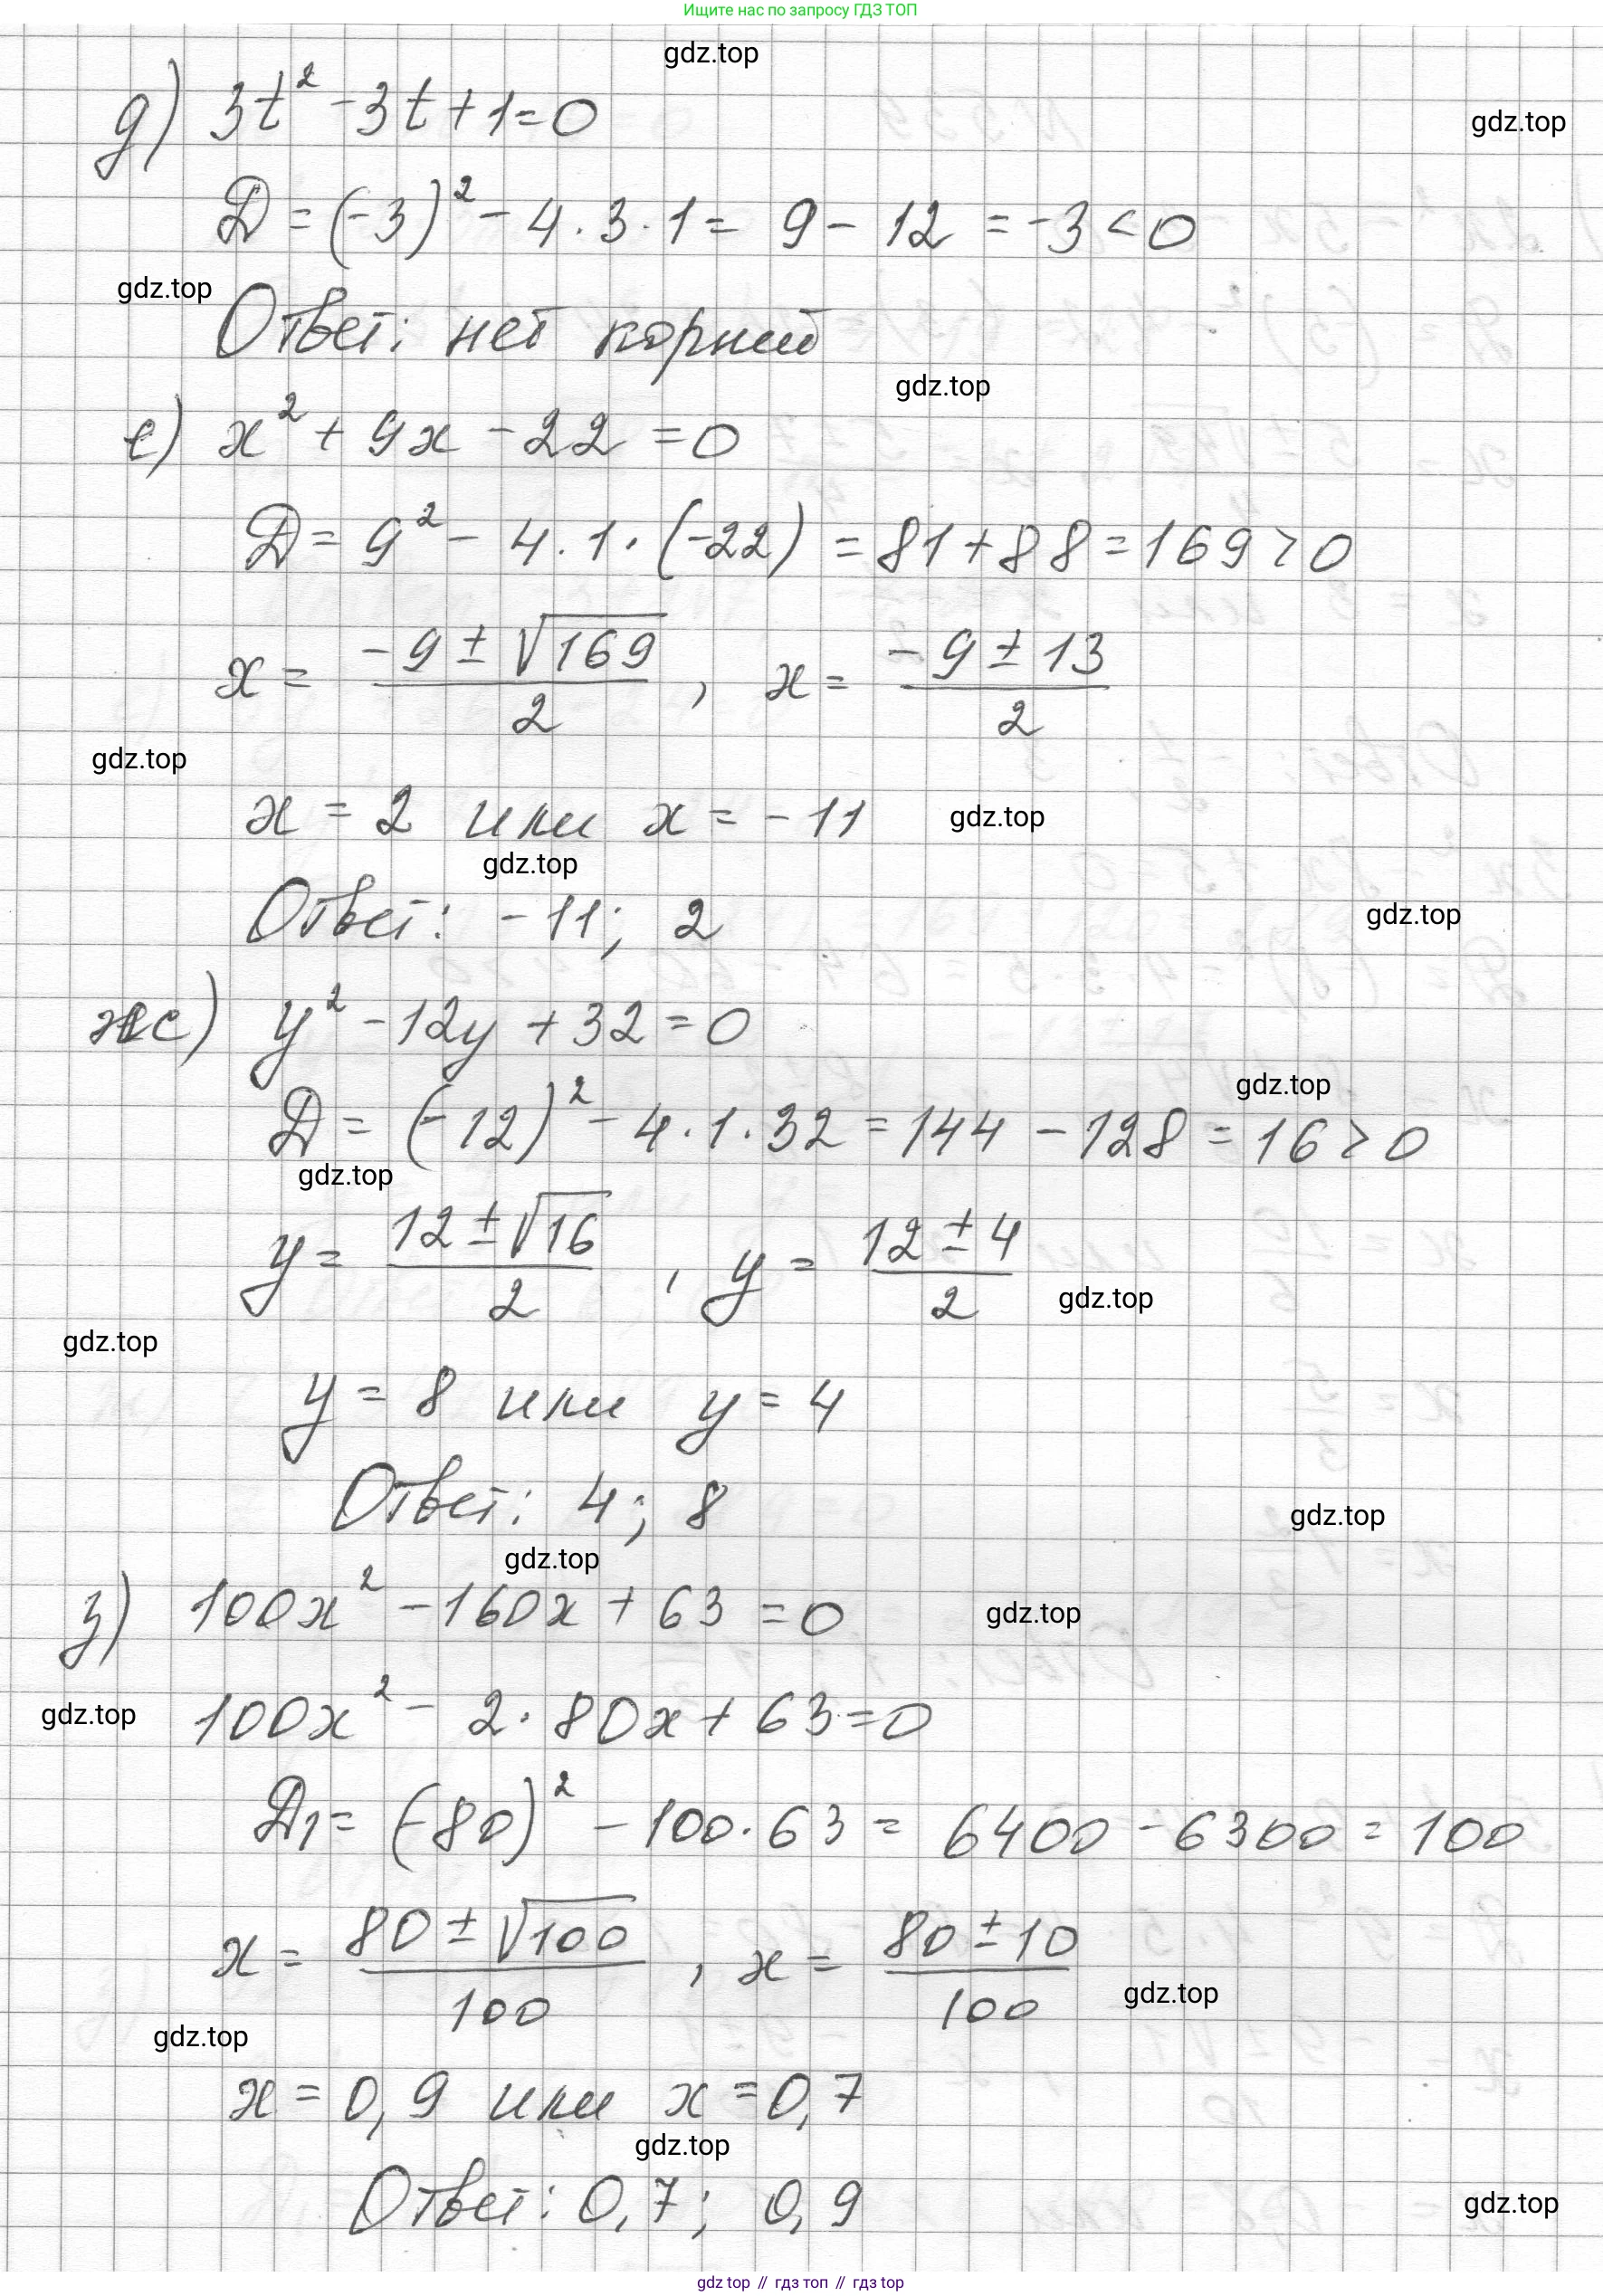 Ищите нас по запросу ГДЗ ТОП
gdz.top
д) 3t² - 3t + 1 = 0
gdz.top
D = (-3)² - 4 · 3 · 1 = 9 - 12 = -3 < 0
gdz.top
Ответ: нет корней
gdz.top
е) x² + 9x - 22 = 0
D = 9² - 4 · 1 · (-22) = 81 + 88 = 169 > 0
x = (-9 ± √169)/2 , x = (-9 ± 13)/2
gdz.top
x = 2 или x = -11
gdz.top
gdz.top
Ответ: -11; 2
gdz.top
ж) y² - 12y + 32 = 0
gdz.top
D = (-12)² - 4 · 1 · 32 = 144 - 128 = 16 > 0
gdz.top
y = (12 ± √16)/2 , y = (12 ± 4)/2
gdz.top
gdz.top
y = 8 или y = 4
Ответ: 4; 8
gdz.top
gdz.top
з) 100x² - 160x + 63 = 0
gdz.top
gdz.top
100x² - 2 · 80x + 63 = 0
D₁ = (-80)² - 100 · 63 = 6400 - 6300 = 100
x = (80 ± √100)/100 , x = (80 ± 10)/100
gdz.top
gdz.top
x = 0,9 или x = 0,7
gdz.top
Ответ: 0,7; 0,9
gdz.top
gdz top // гдз топ // гдз top